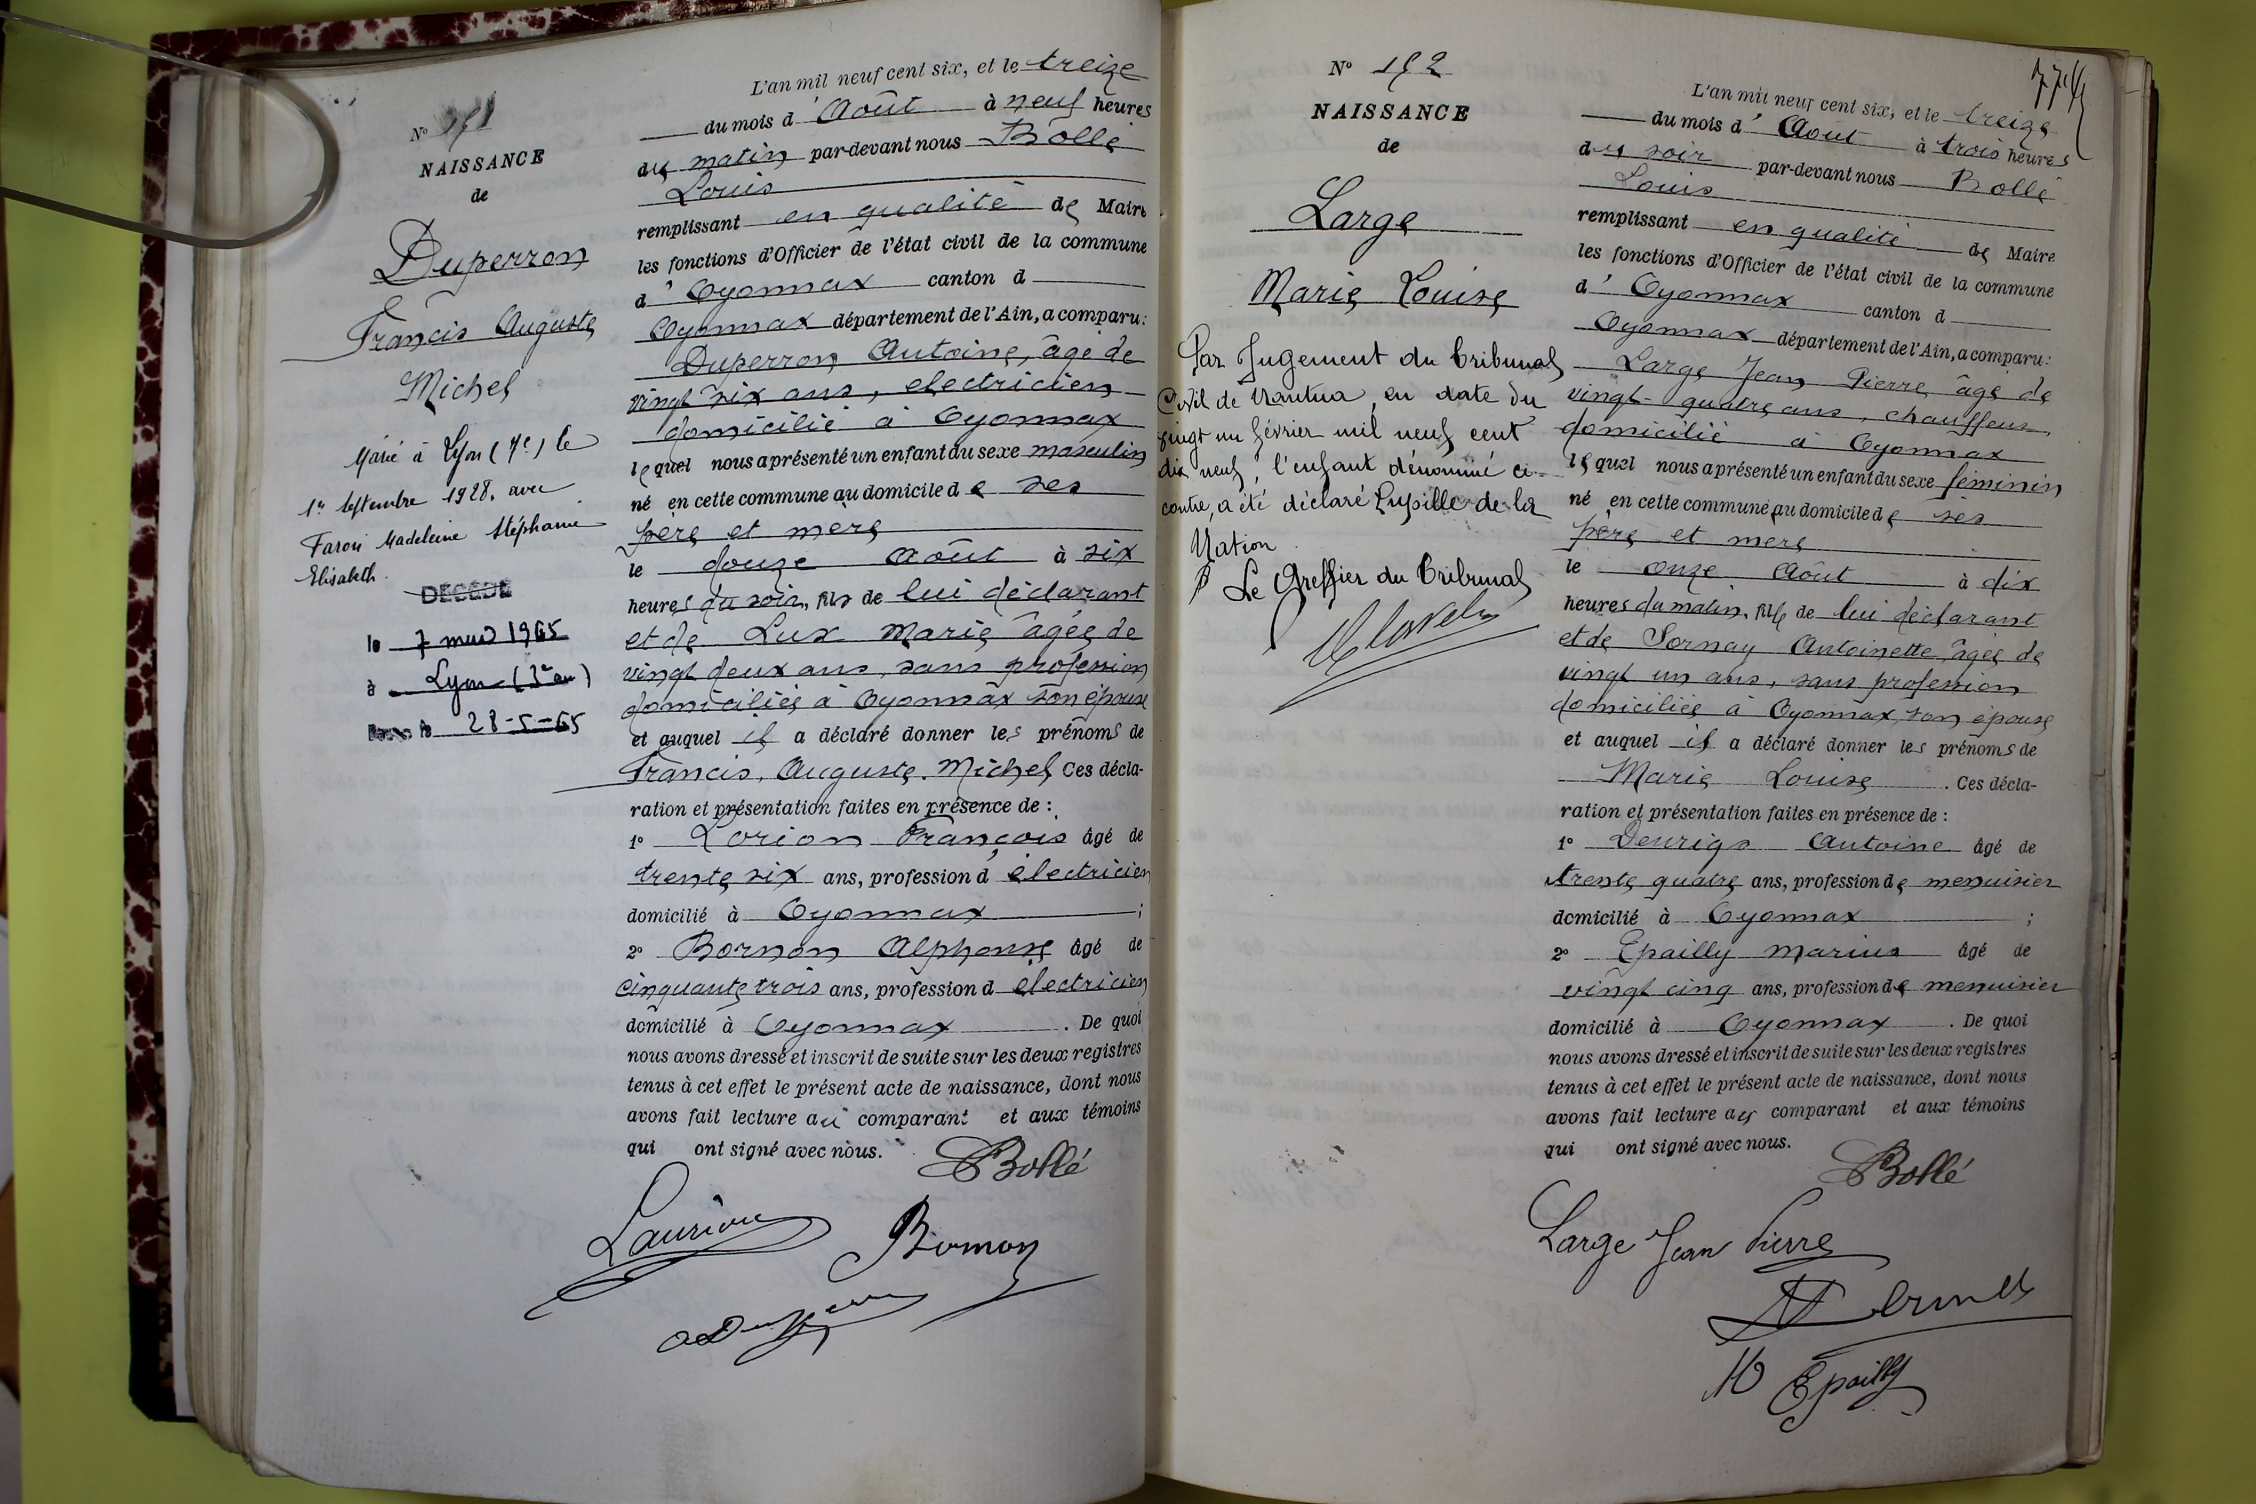 N° 151
NAISSANCE
de
Duperron
Francis Auguste
Michel
Marié à Lyon (7e) le
1er Septembre 1928, avec
Madeleine Stéphanie
Elisabeth.
DÉCÉDÉ
le 7 mars 1965
à Lyon (3e arr)
28-5-65
L'an mil neuf cent six, et le treize
du mois d'Août à neuf heures
du matin par-devant nous Bollé
Louis
remplissant en qualité de Maire
les fonctions d'Officier de l'état civil de la commune
d'Oyonnax canton d
Oyonnax département de l'Ain, a comparu:
Duperron Antoine, âgé de
vingt six ans, electricien
domicilié à Oyonnax
lequel nous a présenté un enfant du sexe masculin
né en cette commune au domicile de ses
père et mère
le douze Août à six
heures du soir, fils de lui déclarant
et de Lux Marie âgée de
vingt deux ans, sans profession
domiciliée à Oyonnax son épouse
et auquel il a déclaré donner les prénoms de
Francis, Auguste, Michel Ces décla-
ration et présentation faites en présence de :
1° Lorion François âgé de
trente six ans, profession d'électricien
domicilié à Oyonnax ;
2° Bornon Alphonse âgé de
cinquante trois ans, profession d électricien
domicilié à Oyonnax. De quoi
nous avons dressé et inscrit de suite sur les deux registres
tenus à cet effet le présent acte de naissance, dont nous
avons fait lecture au comparant et aux témoins
qui ont signé avec nous.
Bollé
Laurion
Bornon
N° 152
NAISSANCE
de
Large
Marie Louise
Par Jugement du Tribunal
Civil de Nantua, en date du
vingt un février mil neuf cent
dix neuf, l'enfant dénommé ci-
contre, a été déclaré Pupille de la
Nation
Le Greffier du Tribunal
L'an mil neuf cent six, et le treize
du mois d'Août à trois heures
du soir par-devant nous Bollé
Louis
remplissant en qualité de Maire
les fonctions d'Officier de l'état civil de la commune
d'Oyonnax canton d
Oyonnax département de l'Ain, a comparu:
Large Jean Pierre âgé de
vingt-quatre ans, chauffeur
domicilié à Oyonnax
lequel nous a présenté un enfant du sexe féminin
né en cette commune au domicile de ses
père et mère
le onze Août à dix
heures du matin, fille de lui déclarant
et de Sornay Antoinette âgée de
vingt un ans, sans profession
domiciliée à Oyonnax, son épouse
et auquel il a déclaré donner les prénoms de
Marie Louise. Ces décla-
ration et présentation faites en présence de :
1° Antoine âgé de
trente quatre ans, profession de menuisier
domicilié à Oyonnax ;
2° Epailly Marius âgé de
vingt cinq ans, profession de menuisier
domicilié à Oyonnax. De quoi
nous avons dressé et inscrit de suite sur les deux registres
tenus à cet effet le présent acte de naissance, dont nous
avons fait lecture au comparant et aux témoins
qui ont signé avec nous.
Bollé
Large Jean Pierre
M Epailly